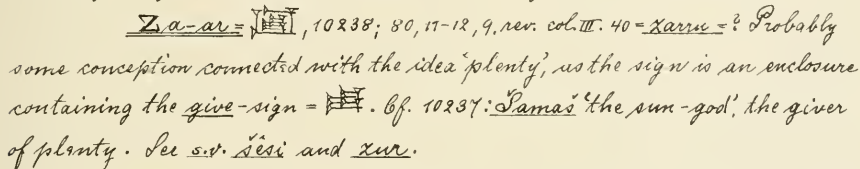 Za-ar = , 10238; 80, 11-12, 9. rev. col. III. 40 = zarru = ? Probably
some conception connected with the idea 'plenty', as the sign is an enclosure
containing the give-sign = . Cf. 10237: Šamaš 'the sun-god', the giver
of plenty. See s.v. šêsi and zur.